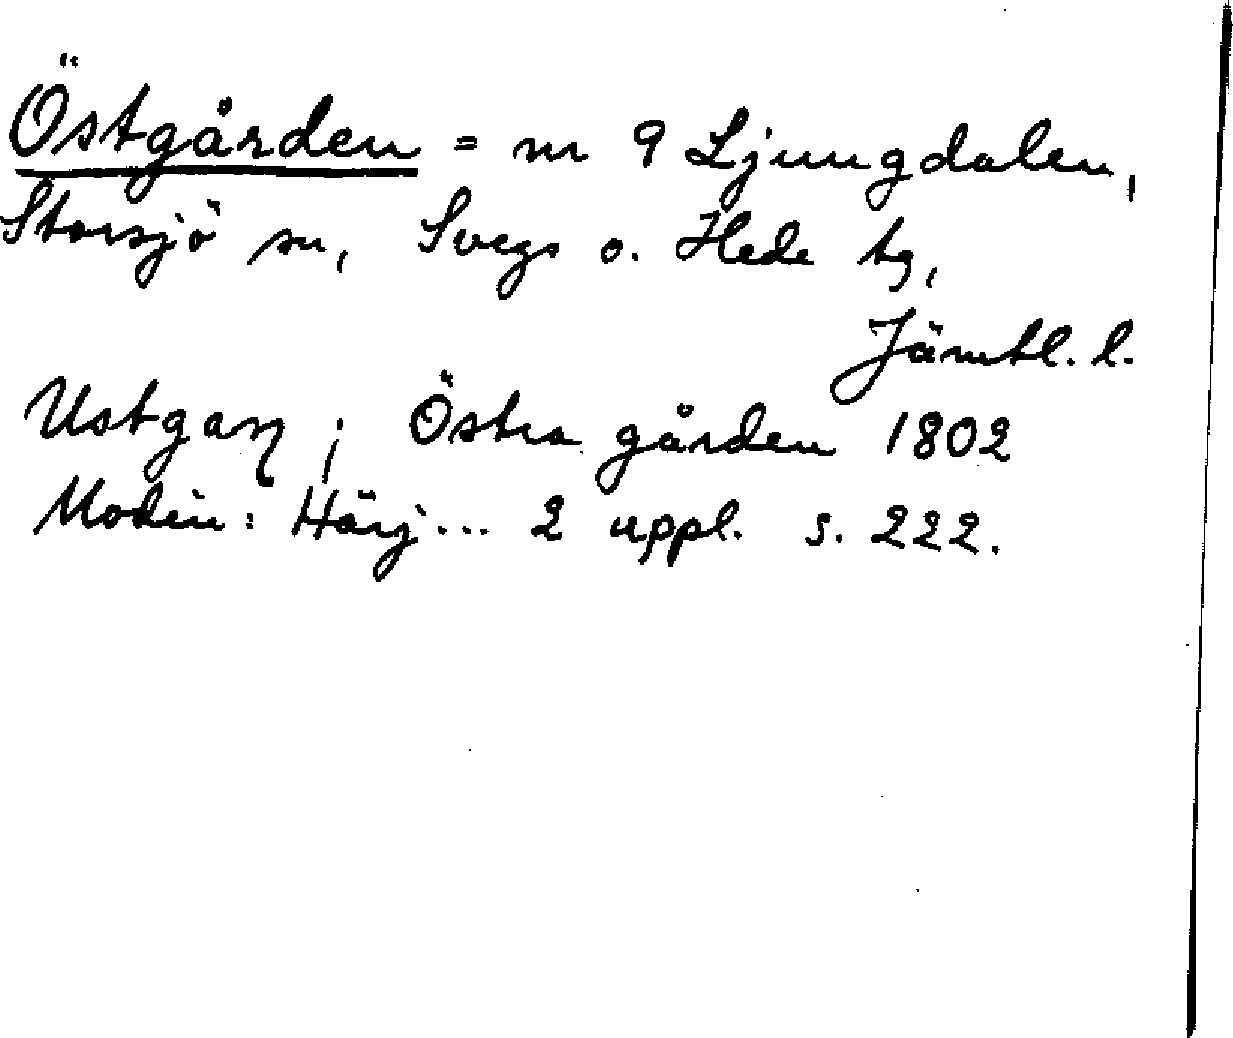 Östgården = nr 9 Ljungdalen,
Storsjö sn, Svegs o. Hede tg,
Jämtl. l.
Ustgaɳ; Östra gården 1802
Modin: Härj... 2 uppl. s. 222.